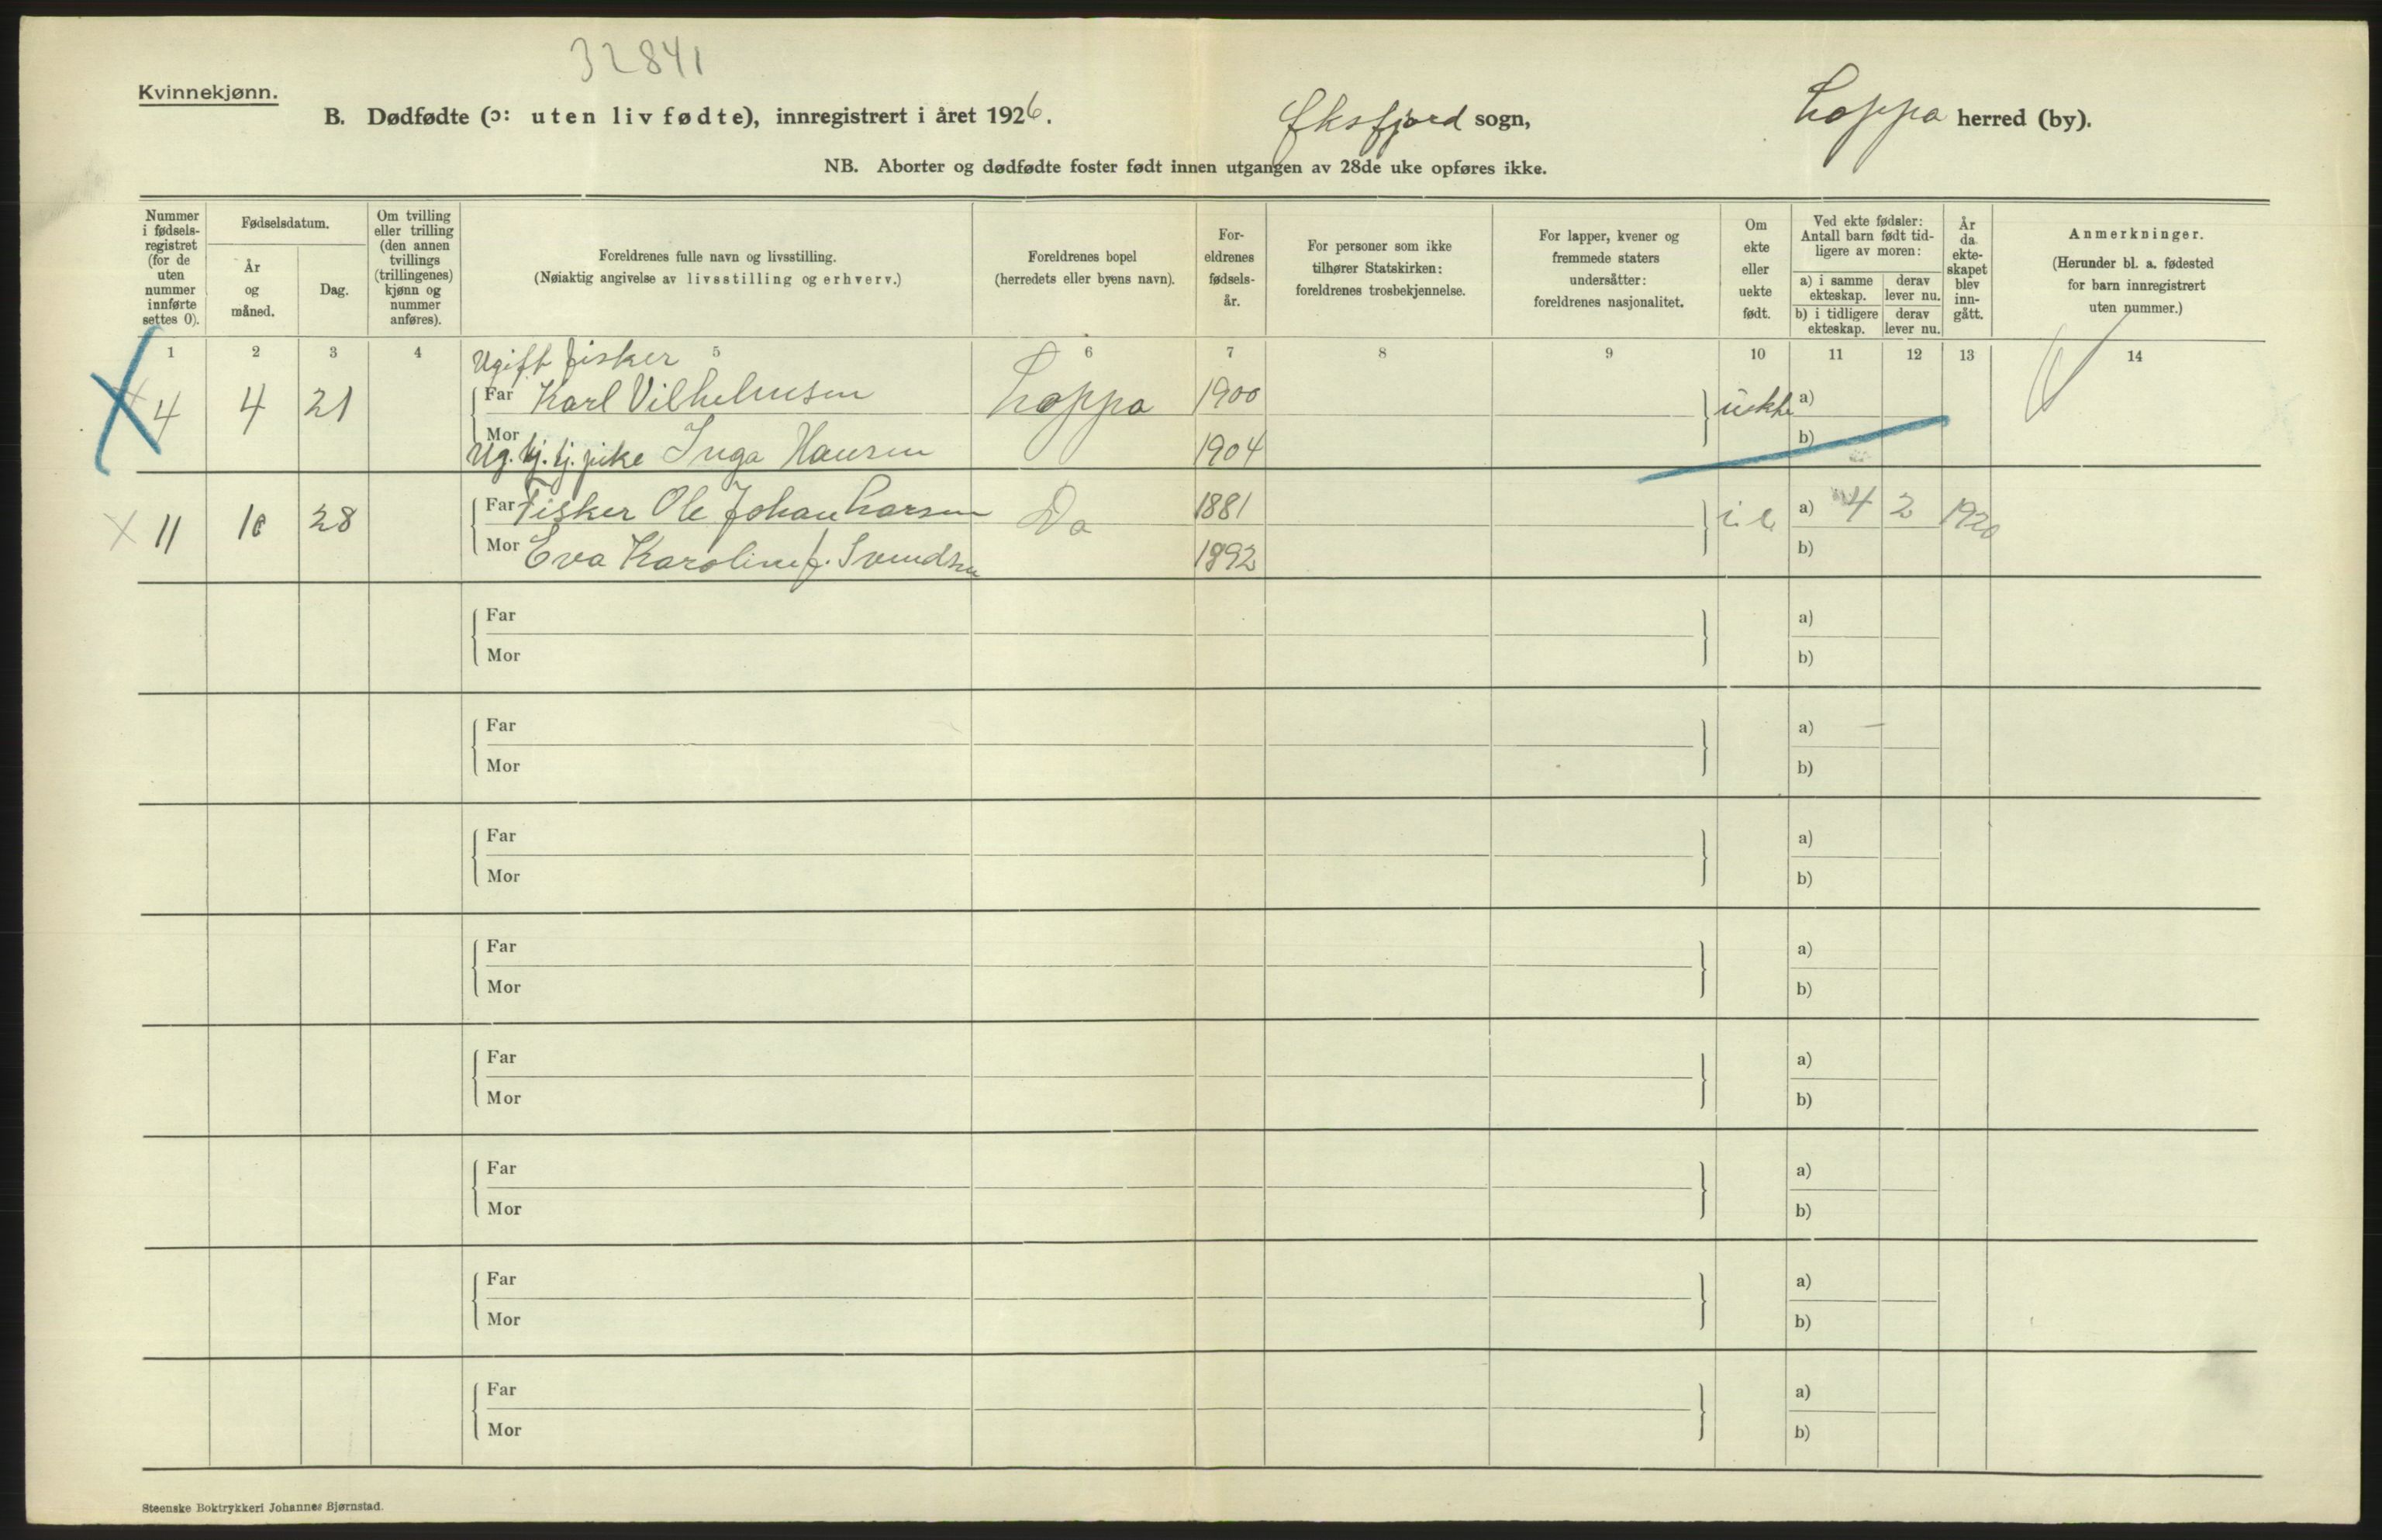 32841
Kvinnekjønn.
B. Dødfødte (ɔ: uten liv fødte), innregistrert i året 1926. Øksfjord sogn, Loppa herred (by).
NB. Aborter og dødfødte foster født innen utgangen av 28de uke opføres ikke.
Nummer i fødsels-registret (for de uten nummer innførte settes 0).
Fødselsdatum.
År og måned.
Dag.
Om tvilling eller trilling (den annen tvillings (trillingenes) kjønn og nummer anføres).
Foreldrenes fulle navn og livsstilling.
(Nøiaktig angivelse av livsstilling og erhverv.)
Foreldrenes bopel
(herredets eller byens navn).
For-eldrenes fødsels-år.
For personer som ikke tilhører Statskirken: foreldrenes trosbekjennelse.
For lapper, kvener og fremmede staters undersåtter: foreldrenes nasjonalitet.
Om ekte eller uekte født.
Ved ekte fødsler: Antall barn født tid-ligere av moren:
a) i samme ekteskap. derav lever nu.
b) i tidligere ekteskap. derav lever nu.
År da ekte-skapet blev inn-gått.
Anmerkninger.
(Herunder bl. a. fødested for barn innregistrert uten nummer.)
1 2 3 4 5 6 7 8 9 10 11 12 13 14
Ugift fisker
4 4 21 Far Karl Vilhelmsen Loppa 1900 uekte a)
Mor b)
Ug. tj. pike Inga Hansen 1904
11 10 28 Far Fisker Ole Johan Larsen Do 1881 i e. a) 4 2 1920
Mor Eva Karoline f. Svendsen 1892 b)
Far a)
Mor b)
Far a)
Mor b)
Far a)
Mor b)
Far a)
Mor b)
Far a)
Mor b)
Far a)
Mor b)
Far a)
Mor b)
Far a)
Mor b)
Steenske Boktrykkeri Johannes Bjørnstad.